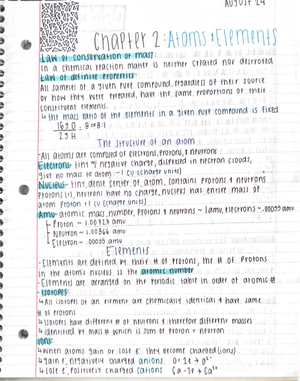 AUGUST 24
Chapter 2: Atoms + Elements
Law of conservation of mass:
in a chemical reaction matter is neither created nor destroyed
Law of definite properties
All samples of a given pure compound, regardless of their source
or how they were prepared, have the same proportions of their
constituent elements.
↳ the mass ratio of the elements in a given pure compound is fixed
16g O = 8 or 8:1
2g H
The structure of an atom
- All atoms are composed of electrons, protons, & neutrons
Electrons: tiny, negative charge, dispersed in electron clouds,
give no mass to atom -1 cu (charge units)
Nucleus: tiny, dense center of atom, contains protons & neutrons
Protons (+), neutrons have no charge, nucleus has entire mass of
atom Proton +1 cu (charge units)
Amu- atomic mass, number, protons & neutrons - 1amu, electrons - .00055 amu
Proton - 1.00727 amu
Neutron - 1.00866 amu
Electron - .00055 amu
Elements
- Elements are defined by their # of protons, the # of protons
in the atoms nucleus is the atomic number
- Elements are arranged on the periodic table in order of atomic #
Isotopes
↳ All isotopes of an element are chemically identical & have same
# of protons
↳ Isotopes have different # of neutrons & therefore different masses
↳ identified by mass # which is sum of proton + neutron
Ions
↳ When atoms gain or lose e⁻ they become charged (ions)
↳ gain e⁻, negatively charged anions O + 2e → O²⁻
↳ lose e⁻, positively charged cations Ca - 2e → Ca²⁺